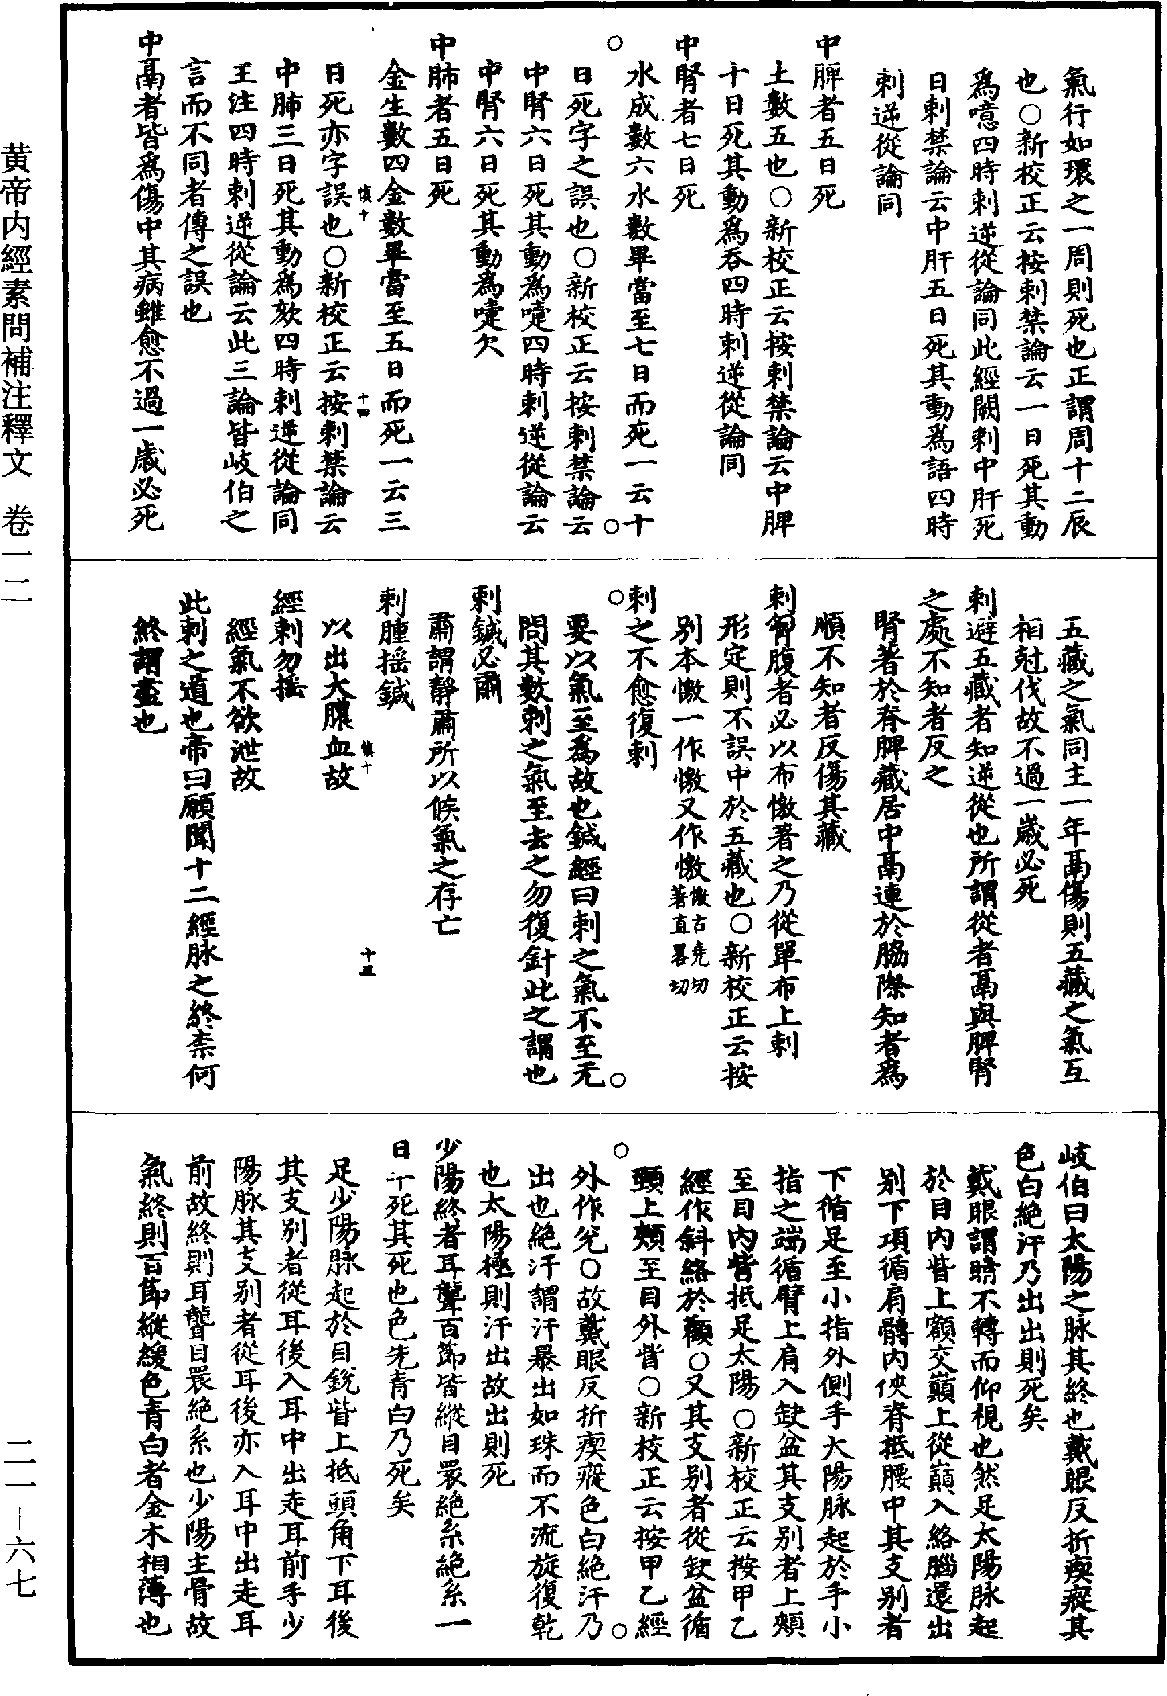 黄帝内經素問補注釋文　卷一二
二一—六七
氣行如環之一周則死也正謂周十二辰
也○新校正云按刺禁論云一日死其動
爲噫四時刺逆從論同此經闕刺中肝死
日刺禁論云中肝五日死其動爲語四時
刺逆從論同
中脾者五日死
土數五也○新校正云按刺禁論云中脾
十日死其動爲吞四時刺逆從論同
中腎者七日死
水成數六水數畢當至七日而死一云十
日死字之誤也○新校正云按刺禁論云
中腎六日死其動爲嚏四時刺逆從論云
中腎六日死其動爲嚏欠
中肺者五日死
金生數四金數畢當至五日而死一云三
日死亦字誤也○新校正云按刺禁論云
中肺三日死其動爲欬四時刺逆從論同
王注四時刺逆從論云此三論皆岐伯之
言而不同者傳之誤也
中鬲者皆爲傷中其病雖愈不過一歲必死
五藏之氣同主一年鬲傷則五藏之氣互
相尅伐故不過一歲必死
刺避五藏者知逆從也所謂從者鬲與脾腎
之處不知者反之
腎著於脊脾藏居中鬲連於脇際知者爲
順不知者反傷其藏
刺胷腹者必以布憿著之乃從單布上刺
形定則不誤中於五藏也○新校正云按
別本憿一作㦎又作憿憿古堯切著直畧切
刺之不愈復刺
要以氣至爲故也鍼經曰刺之氣不至无
問其數刺之氣至去之勿復針此之謂也
刺鍼必肅
肅謂靜肅所以候氣之存亡
刺腫摇鍼
以出大膿血故
經刺勿摇
經氣不欲泄故
此刺之道也帝曰願聞十二經脉之終柰何
終謂盡也
岐伯曰太陽之脉其終也戴眼反折瘈瘲其
色白絶汗乃出出則死矣
戴眼謂睛不轉而仰視也然足太陽脉起
於目内眥上額交巔上從巔入絡腦還出
别下項循肩髆内俠脊抵腰中其支别者
下循足至小指外側手太陽脉起於手小
指之端循臂上肩入缺盆其支别者上頰
至目内眥抵足太陽○新校正云按甲乙
經作斜絡於顴○又其支别者從缺盆循
頸上頰至目外眥○新校正云按甲乙經
外作兊○故戴眼反折瘈瘲色白絶汗乃
出也絶汗謂汗暴出如珠而不流旋復乾
也太陽極則汗出故出則死
少陽終者耳聾百節皆縱目睘絶系絶系一
日半死其死也色先青白乃死矣
足少陽脉起於目銳眥上抵頭角下耳後
其支别者從耳後入耳中出走耳前手少
陽脉其支别者從耳後亦入耳中出走耳
前故終則耳聾目睘絶系也少陽主骨故
氣終則百節縱緩色青白者金木相薄也